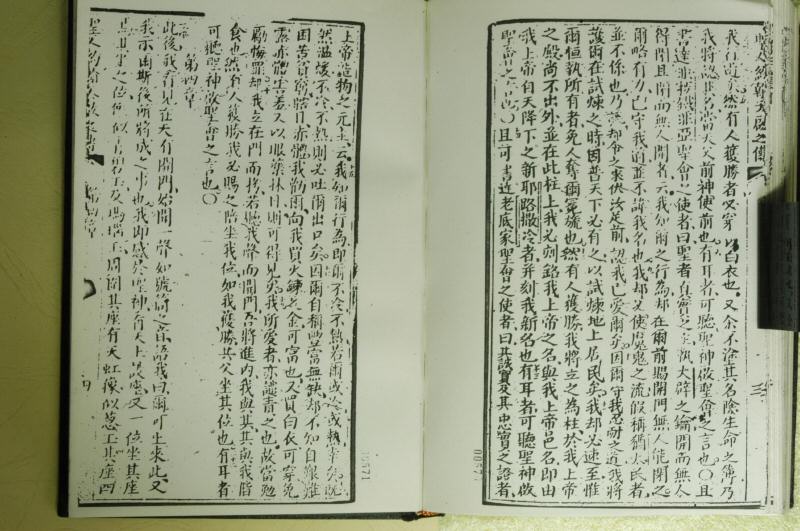 聖人若翰天啟之傳
我行道矣然有人獲勝者必穿以白衣也又余不塗其名陰生命之簿乃
我將認其名當天父前神使前也有耳者可聽聖神啟聖會之言也〇且
書達非拉鐵非亞聖會之使者曰聖者真實之主執大辟之鑰開而無人
得閉且閉而無人開者云我知爾之行為却在爾前賜開門無人能閉之
爾略有力已守我道並不諱我名也我却必使魔鬼之流假稱猶太民者
並不係也乃
令之來伏汝足前認我已愛爾矣因爾守我忍耐之道我將
護爾在試煉之時因普天下必有之以試煉地上居民矣我却必速至惟
爾恒執所有者免人奪爾冕旒也然有人獲勝我將立之為柱於我上帝
之殿尚不出外並在此柱上我必刻銘我上帝之名與我上帝邑名即由
我上帝自天降下之新耶路撒冷者并刻我新名也有耳者可聽聖神啟
聖會之言也〇且可書達老底家聖會之使者曰其誠實及其忠實之證者
上帝造物之元主云我知爾行為即爾不冷不熱若爾或冷或熱幸矣既
然溫煖不冷不熱則必吐爾出口矣因爾自稱豐富無缺却不知自艱難
困苦貧窮瞎目赤體我勸爾向我買火鍊之金可富也又買白衣可穿免
露赤體害羞又以眼藥抹目則可得見矣我所愛者亦譴責之也故當勉
勵悔罪却我立在門而扨若聽我聲而開門吾將進內我與其其與我脩
食也然有人獲勝我必賜之陪坐我位如我獲勝共父坐其位也有耳者
可聽聖神啟聖會之言也〇
第四章
此後我看見在天有開門始聞一聲如號筒之音語我曰爾可上來此又
我示由斯後所將成之事也我即感於聖神看天上設座又一位坐其座
坐其座之位
似
玉及瑪瑙玉周圍其座有天虹像似蔥玉其座四
第四章